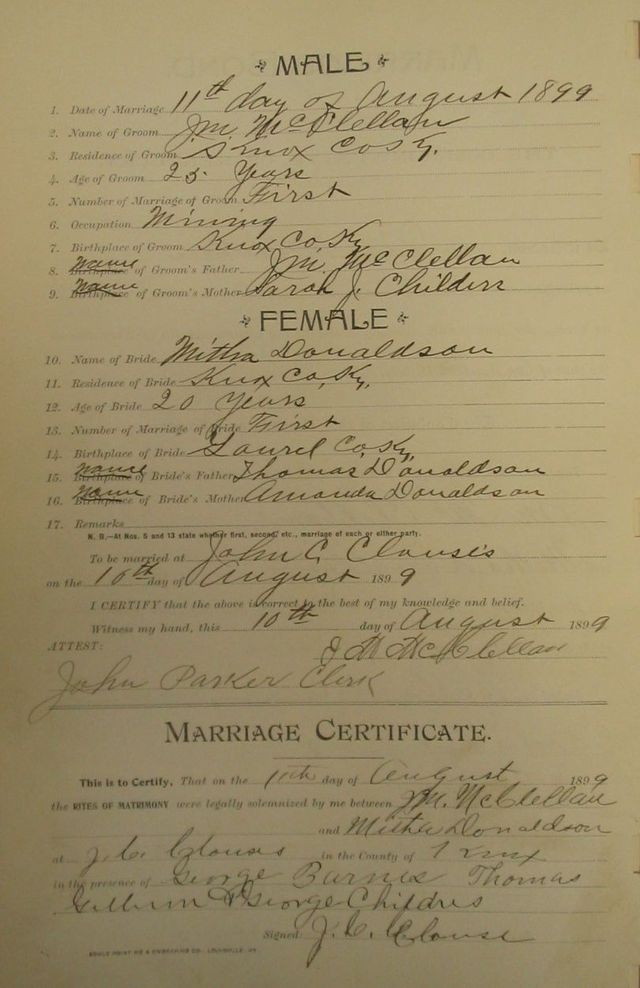 MALE
1. Date of Marriage 11th day of August 1899
2. Name of Groom J.M. McClellan
3. Residence of Groom Knox Co Ky.
4. Age of Groom 25 Years
5. Number of Marriage of Groom First
6. Occupation Mining
7. Birthplace of Groom Knox Co, Ky
8. Name of Groom's Father J.M. McClellan
9. Name of Groom's Mother Sarah J. Childers
FEMALE
10. Name of Bride Mitha Donaldson
11. Residence of Bride Knox Co, Ky,
12. Age of Bride 20 Years
13. Number of Marriage of Bride First
14. Birthplace of Bride Laurel Co, Ky,
15. Name of Bride's Father Thomas Donaldson
16. Name of Bride's Mother Amanda Donaldson
17. Remarks
N. B.—At Nos. 5 and 13 state whether first, second, etc., marriage of each or either party.
To be married at John C. Clouse's
on the day of August 1899
I CERTIFY that the above is correct to the best of my knowledge and belief.
Witness my hand, this 10th day of August 1899
ATTEST: J M McClellan
John Parker Clerk
MARRIAGE CERTIFICATE.
This is to Certify, That on the day of August 1899
the RITES OF MATRIMONY were legally solemnized by me between J.M. McClellan
and Mitha Donaldson
at J. C. Clouses in the County of Knox
in the presence of George Barnes Thomas
& George Childres
Signed J. C. Clouse